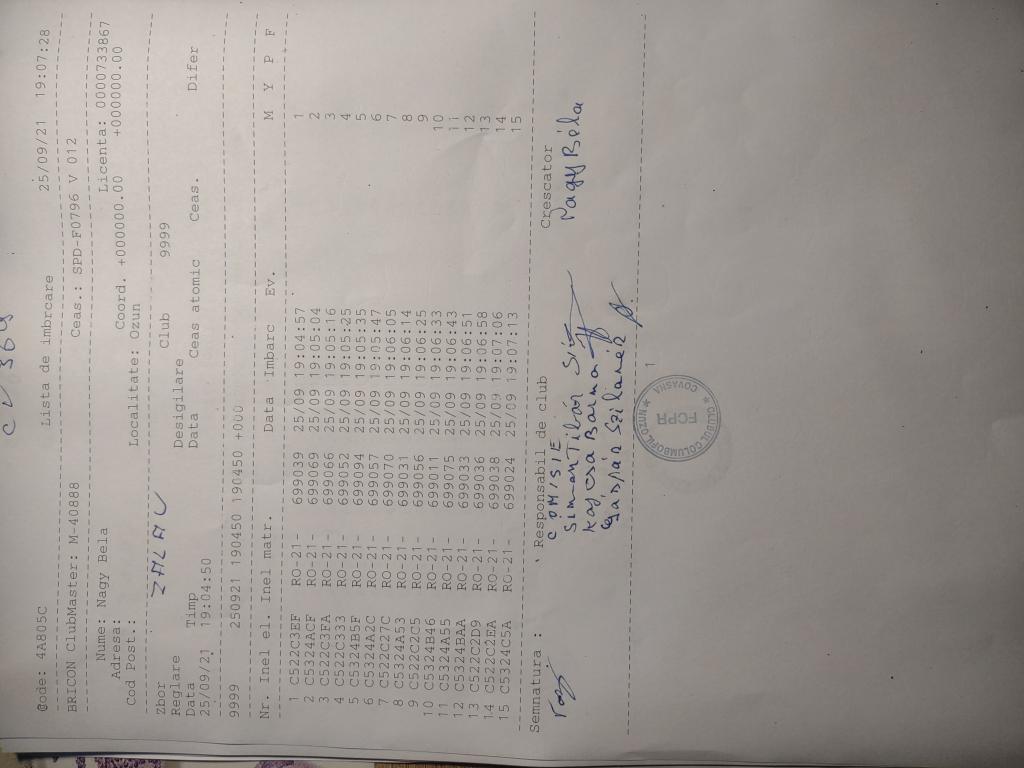 C J 369
@ode: 4A805C Lista de imbrcare 25/09/21 19:07:28
BRICON ClubMaster: M-40888 Ceas.: SPD-F0796 V 012
Nume: Nagy Bela Licenta: 0000733867
Adresa: Coord. +000000.00 +000000.00
Cod Post.: Localitate: Ozun
Zbor ZALAU Club 9999
Reglare Desigilare
Data Timp Data Ceas atomic Ceas. Difer
25/09/21 19:04:50
9999 250921 190450 190450 +000
Nr. Inel el. Inel matr. Data Imbarc Ev. M Y P F
1 C522C3EF RO-21- 699039 25/09 19:04:57 1
2 C5324ACF RO-21- 699069 25/09 19:05:04 2
3 C522C3FA RO-21- 699066 25/09 19:05:16 3
4 C522C333 RO-21- 699052 25/09 19:05:25 4
5 C5324B5F RO-21- 699094 25/09 19:05:35 5
6 C5324A2C RO-21- 699057 25/09 19:05:47 6
7 C522C27C RO-21- 699070 25/09 19:06:05 7
8 C5324A53 RO-21- 699031 25/09 19:06:14 8
9 C522C2C5 RO-21- 699056 25/09 19:06:25 9
10 C5324B46 RO-21- 699011 25/09 19:06:33 10
11 C5324A55 RO-21- 699075 25/09 19:06:43 11
12 C5324BAA RO-21- 699033 25/09 19:06:51 12
13 C522C2D9 RO-21- 699036 25/09 19:06:58 13
14 C522C2EA RO-21- 699038 25/09 19:07:06 14
15 C5324C5A RO-21- 699024 25/09 19:07:13 15
Semnatura : Responsabil de club Crescator
COMISIE Nagy Béla
Simon Tibor
Kajcsa Barna
Gáspár Szilamér
1
CLUBUL COLUMBOFIL OZUN
FCPR
COVASNA